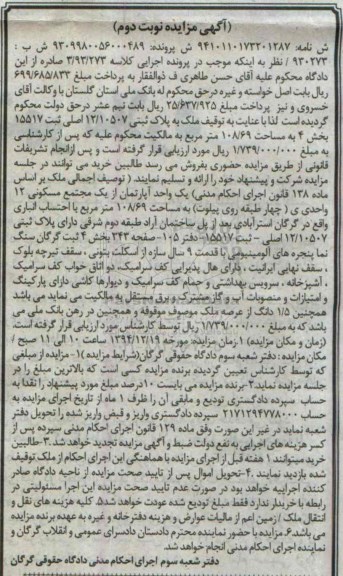 (آگهی مزایده نوبت دوم)
ش نامه: ۹۴۱۰۱۱۰۱۷۳۲۰۱۲۸۷ ش پرونده: ۹۳۰۹۹۸۰۰۵۶۰۰۰۴۸۹ ش ب :
۹۳۰۲۷۳ / نظر به اینکه موجب در پرونده اجرایی کلاسه ۳/۹۳/۲۷۳ صادره از این
دادگاه محکوم علیه آقای حسن طاهری ف ذوالفقار به پرداخت مبلغ ۶۹۹/۶۸۵/۸۳۳
ریال بابت اصل خواسته و غیره درحق محکوم له بانک ملی استان گلستان با وکالت آقای
خسروی و نیز پرداخت مبلغ ۲۵/۶۳۷/۹۲۵ ریال بابت نیم عشر درحق دولت محکوم
گردیده است لذا با عنایت به توقیف ملک به پلاک ثبتی ۱۲/۱۰۵۰۷ اصلی ثبت ۱۵۵۱۷
بخش ۴ به مساحت ۱۰۸/۶۹ متر مربع به مالکیت محکوم علیه که پس از کارشناسی
به مبلغ ۱/۷۳۹/۰۰۰/۰۰۰ ریال مورد ارزیابی قرار گرفته است و پس ازانجام تشریفات
قانونی از طریق مزایده حضوری بفروش می رسد طالبین خرید می توانند در جلسه
مزایده شرکت و پیشنهاد خود را ارائه و تسلیم نمایند. ( توصیف اجمالی ملک بر اساس
ماده ۱۳۸ قانون اجرای احکام مدنی) یک واحد آپارتمان از یک مجتمع مسکونی ۱۲
واحدی ی ( چهار طبقه روی پیلوت) به مساحت ۱۰۸/۶۹ متر مربع با احتساب انباری
واقع در گرگان استرآبادی بعد از پل ساختمان آراد طبقه دوم شرقی دارای پلاک ثبتی
۱۲/۱۰۵۰۷ اصلی – ثبت ۱۵۵۱۷- دفتر ۱۰۵- صفحه ۳۴۳ بخش ۴ ثبت گرگان سنگ
نما پنجره های آلومینیومی با قدمت ۹ سال سازه از اسکلت بتونی ، سقف تیرچه بلوک
، سقف نهایی ایرانیت ، دارای هال پذیرایی کف سرامیک، دو اتاق خواب کف سرامیک
، آشپزخانه ، سرویس بهداشتی و حمام کف سرامیک و دیوارها کاشی دارای پارکینگ
و امتیازات و منصوبات آب و گاز مشترک و برق مستقل به مالکیت می نماید می باشد
همچنین ۱/۵ دانگ از عرصه ملک موصوف موقوفه و همچنین در رهن بانک ملی می
باشد که به مبلغ ۱/۷۳۹/۰۰۰/۰۰۰ ریال توسط کارشناس مورد ارزیابی قرار گرفته است.
(زمان و مکان مزایده) ۱. زمان مزایده: مورخه ۱۳۹۴/۱۲/۱۹ ساعت ۱۰ الی ۱۱ صبح /
مکان مزایده : دفتر شعبه سوم دادگاه حقوقی گرگان(شرایط مزایده) ۱- مزایده از مبلغی
که توسط کارشناس تعیین گردیده برنده مزایده کسی است که بالاترین مبلغ را در
جلسه مزایده نماید.۲- برنده مزایده می بایست ۱۰درصد مبلغ مورد پیشنهاد را نقدا به
حساب سپرده دادگستری تودیع و مابقی آن را ظرف ۱ ماه از تاریخ اجرای مزایده به
حساب ۲۱۷۱۲۹۴۷۷۸۰۰۰ سپرده دادگستری واریز و قبض واریز شده را تحویل دفتر
شعبه نماید در غیر این صورت وفق ماده ۱۲۹ قانون اجرای احکام مدنی سپرده پس از
کسر هزینه های اجرایی به نفع دولت ضبط و آگهی مزایده تجدید خواهد شد.۳-طالبین
خرید میتوانند ۱ هفته قبل از اجرای مزایده با هماهنگی این اجرای احکام از ملک توقیف
شده بازدید نمایند .۴-تحویل اموال پس از تایید صحت مزایده از ناحیه دادگاه صادر
کننده اجراییه خواهد بود در صورت عدم تایید صحت مزایده این اجرا مسئولیتی در
رابطه با خریدار ندارد فقط مبلغ تودیع شده عودت خواهد شد.۵. کلیه هزینه های نقل و
انتقال ملک / زمین اعم از مالیات عوارض و هزینه دفترخانه و غیره به عهده برنده مزایده
می باشد.۶. مزایده با حضور نماینده محترم دادستان دادسرای عمومی و انقلاب گرگان و
نماینده اجرای احکام مدنی انجام خواهد شد.
دفتر شعبه سوم اجرای احکام مدنی دادگاه حقوقی گرگان